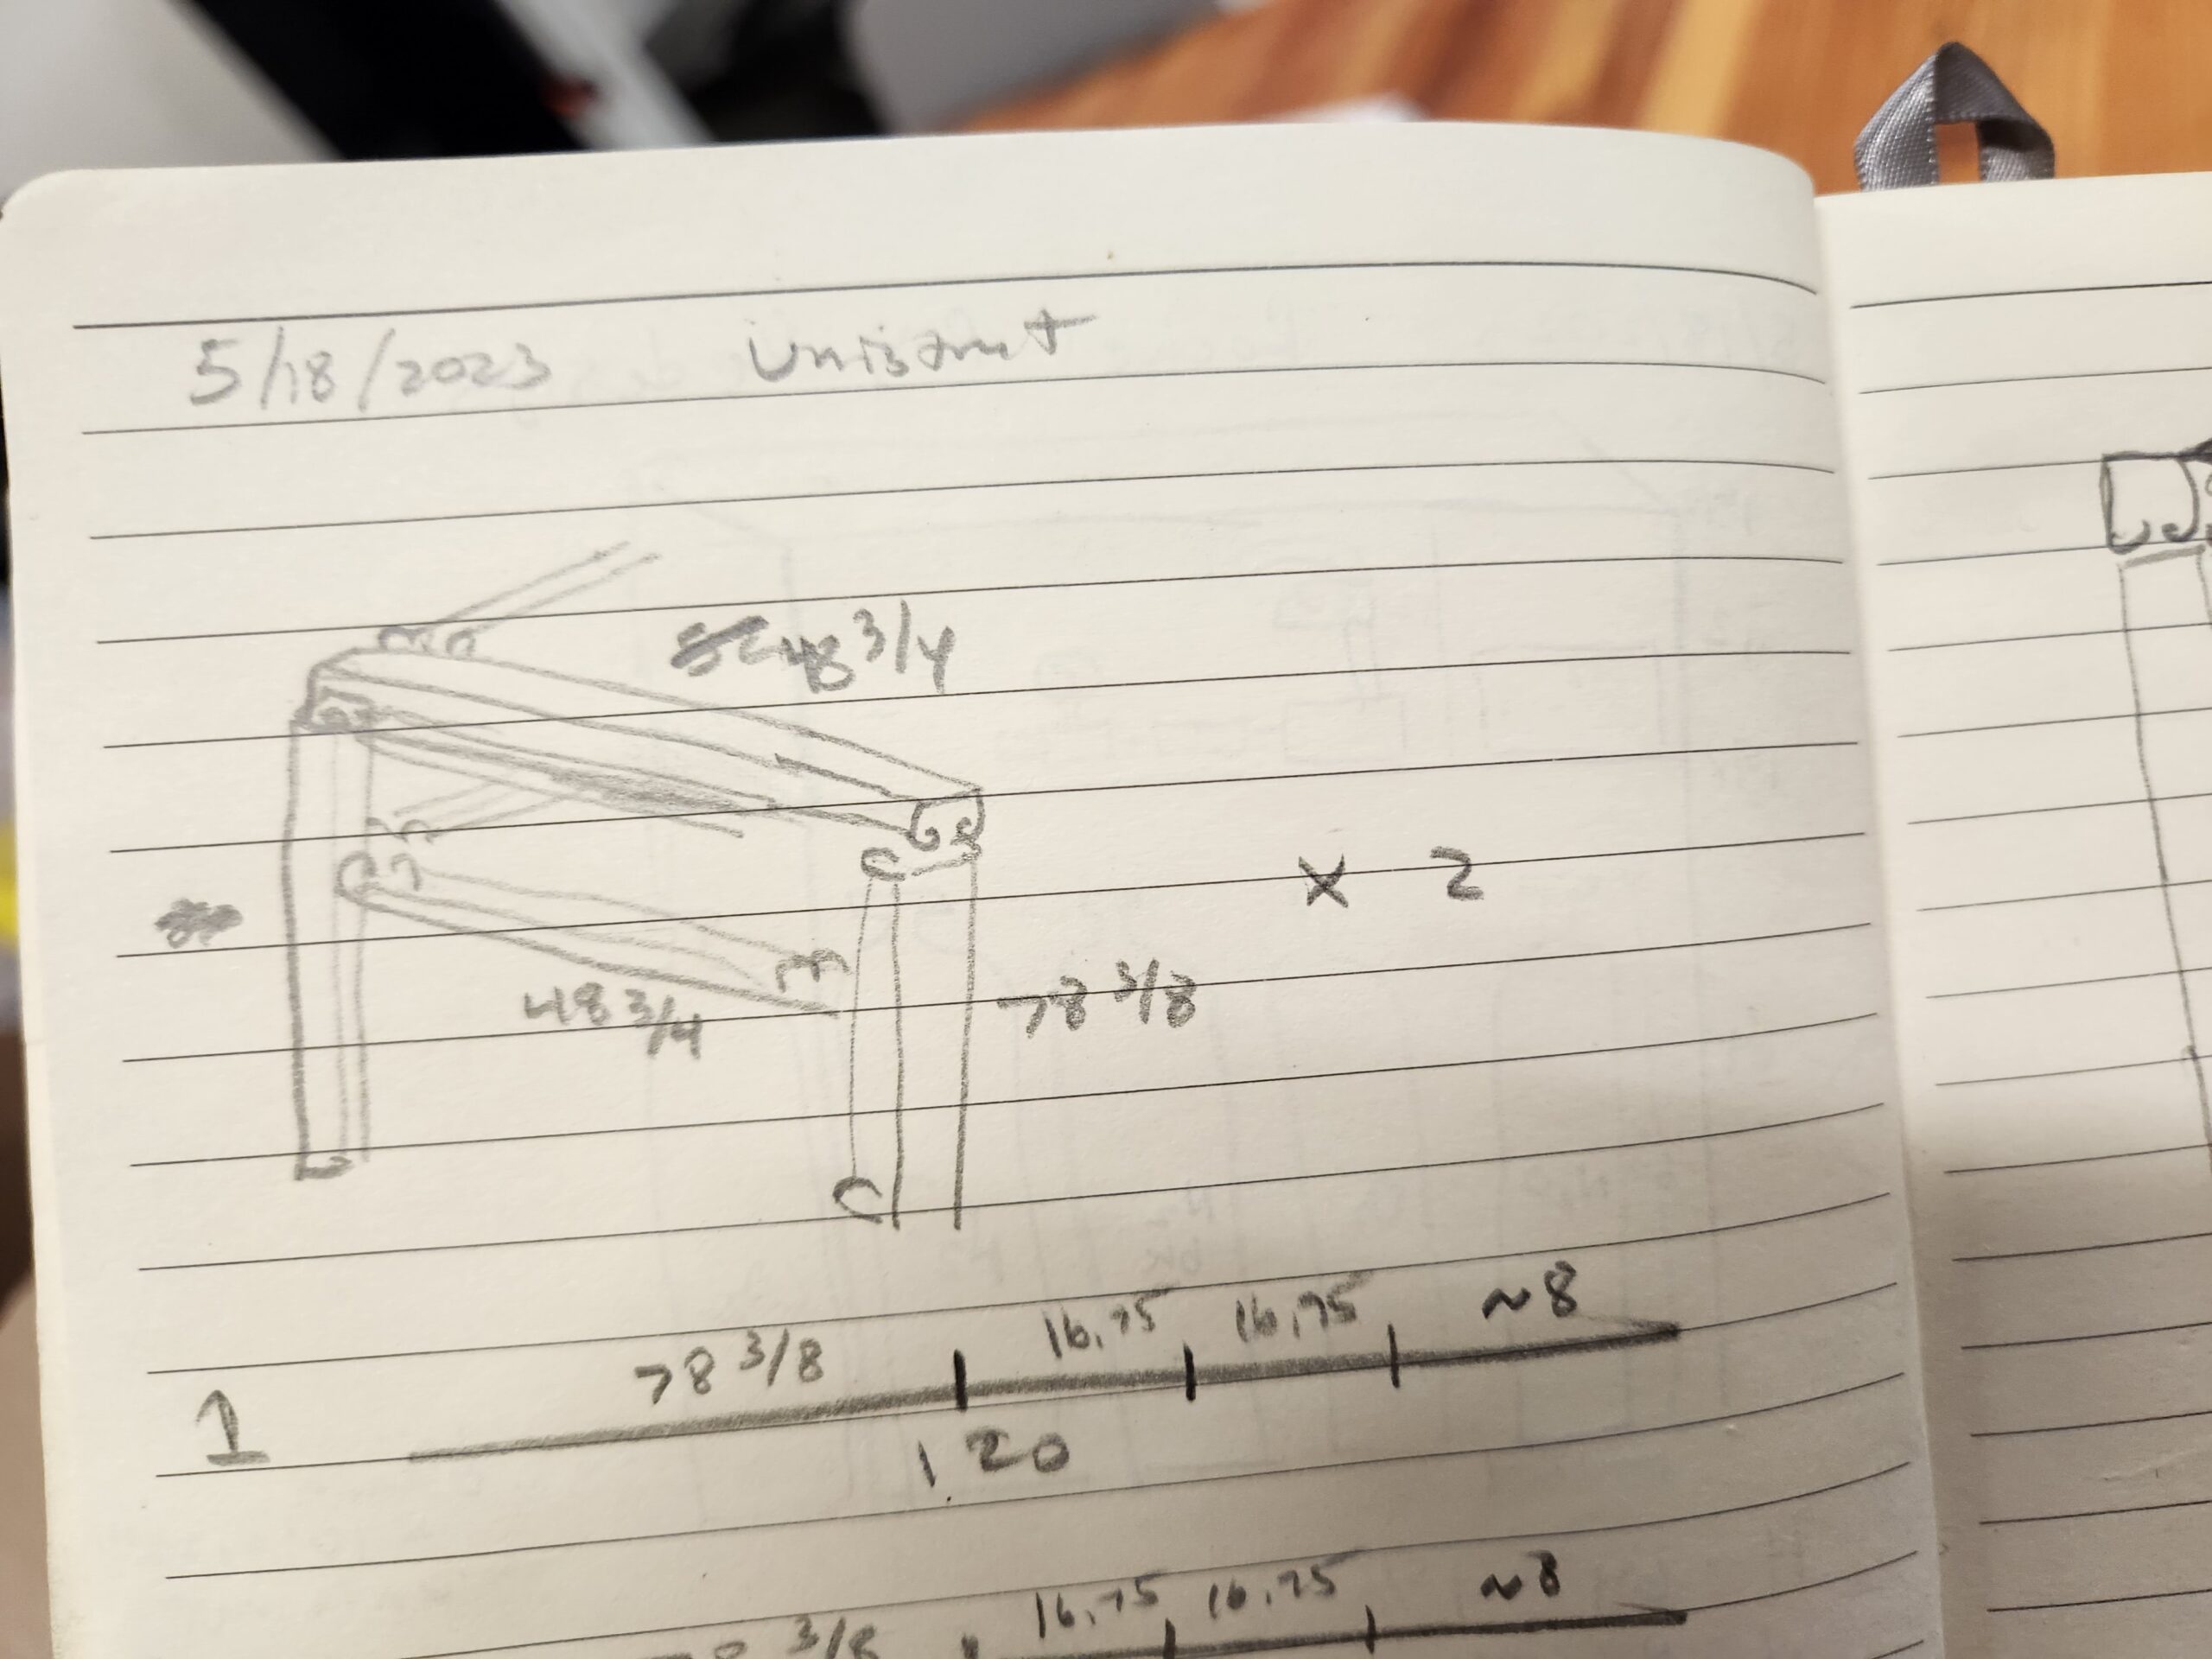 5/18/2023 Unistrut
48 3/4
x 2
48 3/4
78 3/8
78 3/8 16.75 16.75 ~8
1
120
16.75 16.75 ~8
3/8